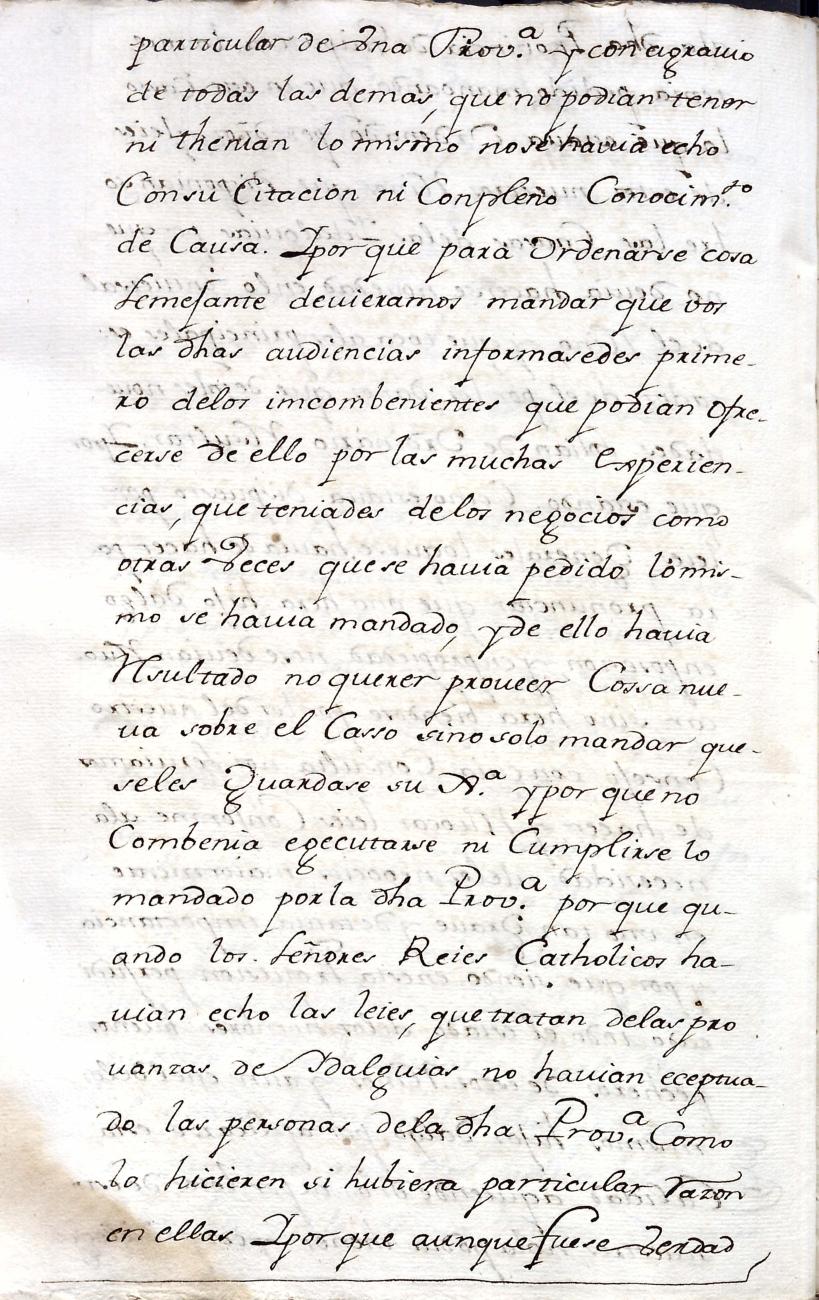 particular de Vna Prov.ª y con agravio
de todas las demas, que no podian tener
ni thenian lo mismo no se havia echo
Con su Citacion ni Conpleno Conocim.to
de Causa. Ypor que para Ordenarse cosa
semejante devieramos mandar que vos
las dhas audiencias informasedes prime-
ro delos imcombenientes que podian Ofre-
cerse de ello por las muchas Experien-
cias, que teniades delos negocios como
otras Veces que se havia pedido lo mis-
mo se havia mandado, y de ello havia
Rsultado no querer proveer Cossa nue-
va sobre el Casso sino solo mandar que-
seles Guardase su X.ª y por que no
Combenia egecutarse ni Cumplirse lo
mandado por la dha Prov.ª por que qu-
ando los señores Reies Catholicos ha-
vian echo las leies, que tratan delas pro
vanzas de Ydalguias no havian eceptua-
do las personas dela dha Prov.ª Como
lo hicieren si hubiera particular razon
en ellas Ypor que aunque fuese Verdad